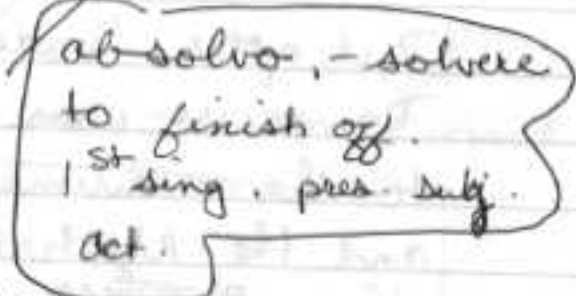 absolvo, -solvere
to finish off.
1st sing. pres. subj.
act.